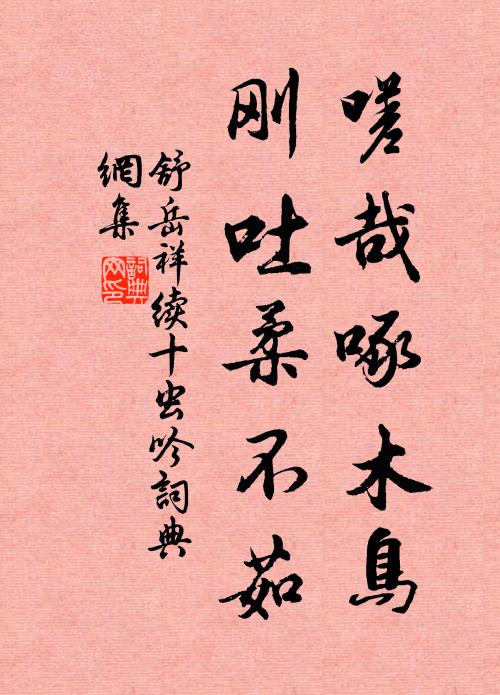 嗟哉啄木鳥
刚吐柔不茹
舒岳祥续十虫吟詞典
網集
詞典
网印